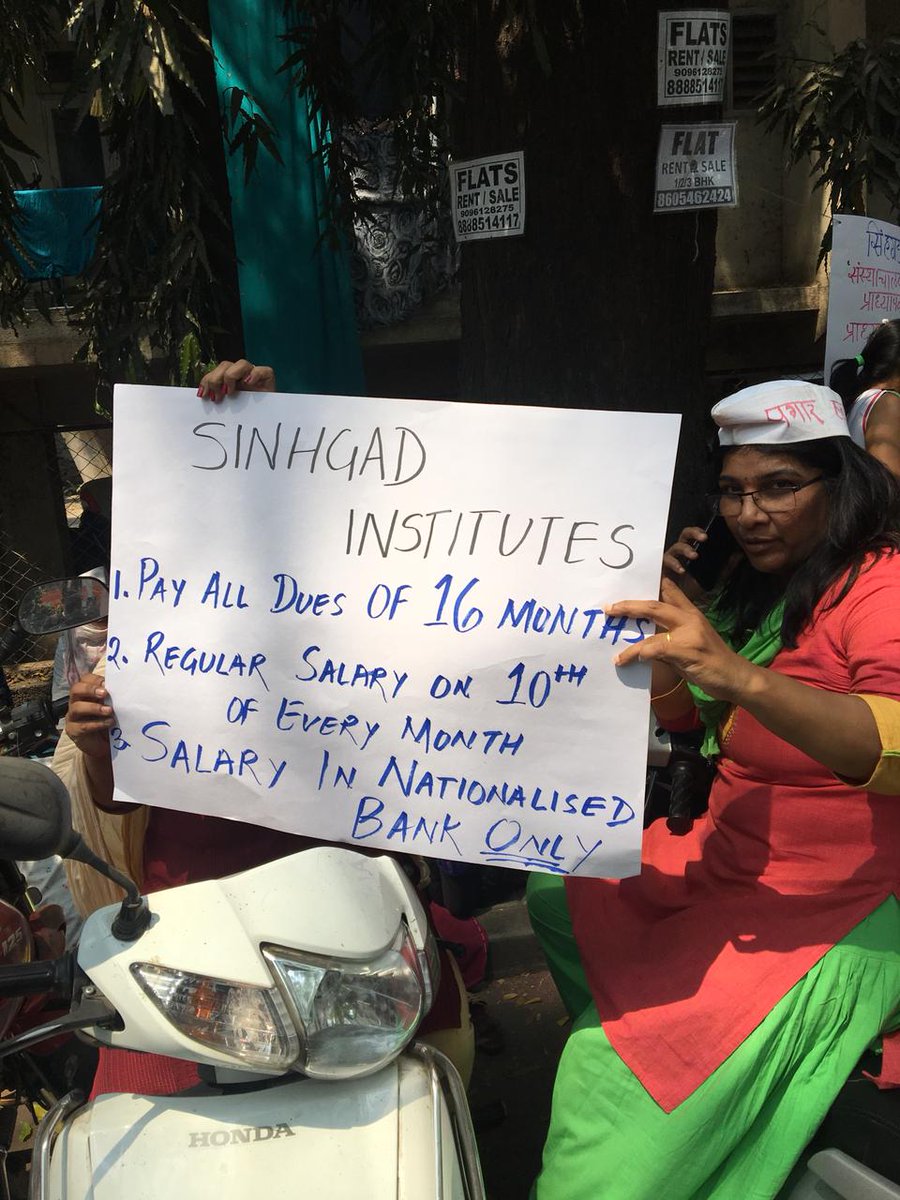 FLATS
RENT / SALE
9096128275
8888514117
FLATS
RENT / SALE
9096128275
8888514117
FLAT
RENT & SALE
1/2/3 BHK
8605462424
पगार
SINHGAD
INSTITUTES
1. PAY ALL DUES OF 16 MONTHS
2. REGULAR SALARY ON 10TH
OF EVERY MONTH
3. SALARY IN NATIONALISED
BANK ONLY
HONDA
125